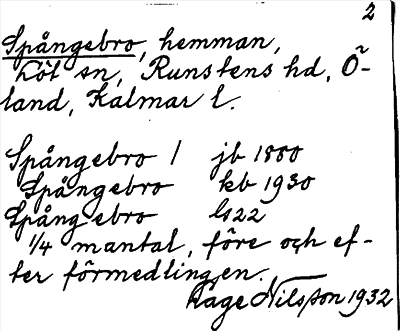 2
Spångebro, hemman,
Löt sn, Runstens hd, Ö-
land, Kalmar l.
Spångebro 1 jb 1880
Spångebro kb 1930
Spångebro GS22
1/4 mantal, före och ef-
ter förmedlingen.
Åge Nilsson 1932